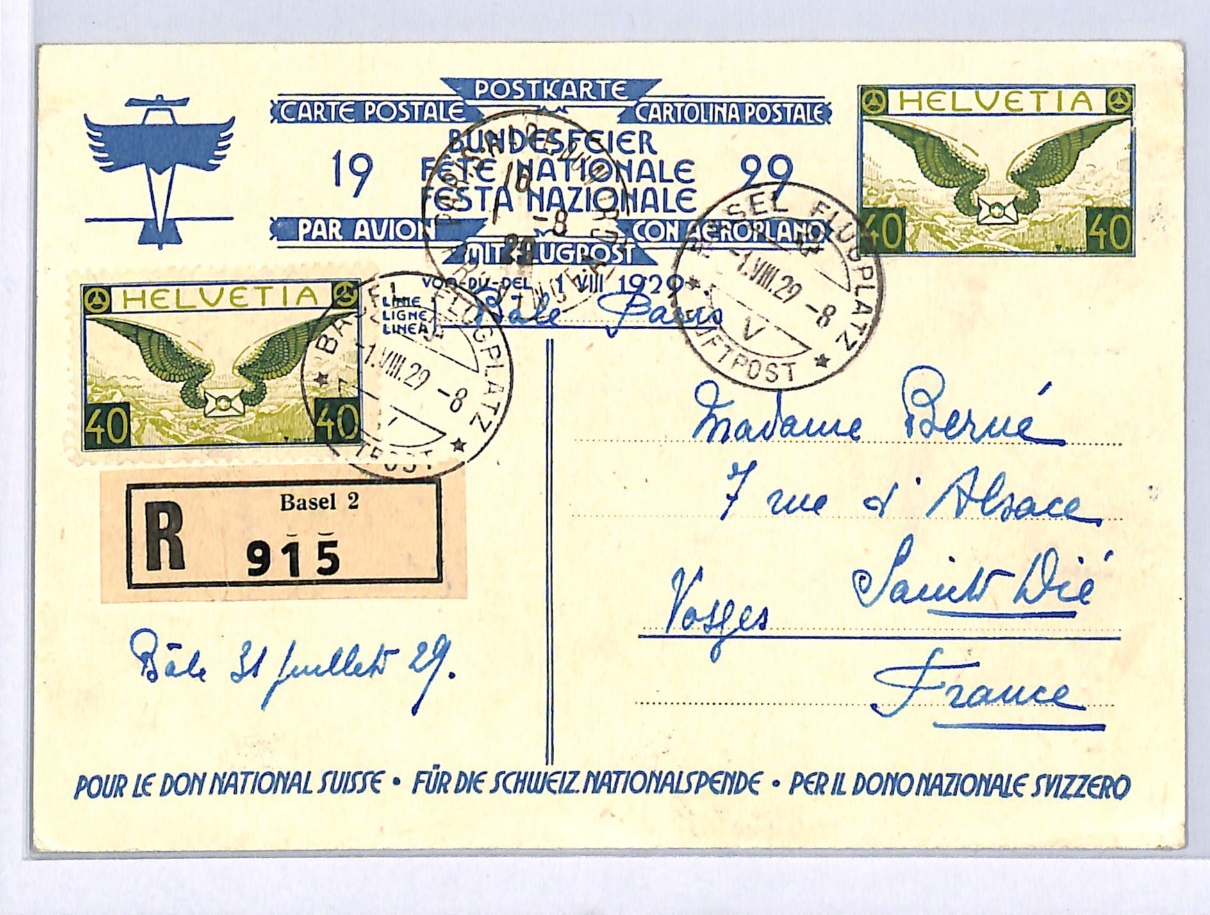 POSTKARTE
CARTE POSTALE CARTOLINA POSTALE
BUNDESFEIER
19 FÊTE NATIONALE 29
FESTA NAZIONALE
PAR AVION CON AEROPLANO
MIT FLUGPOST
VOM-DU-DEL 1 VIII 1929
LINIE
LIGNE
LINEA
Bâle Paris
HELVETIA
40 40
HELVETIA
40 40
BASEL FLUGPLATZ
-1.VIII.29 -8
V
LUFTPOST
BASEL FLUGPLATZ
-1.VIII.29 -8
10
1 -8
29
R Basel 2
915
Madame Berné
7 rue d'Alsace
Saint Dié
Vosges
France
Bâle 31 juillet 29.
POUR LE DON NATIONAL SUISSE • FÜR DIE SCHWEIZ. NATIONALSPENDE • PER IL DONO NAZIONALE SVIZZERO